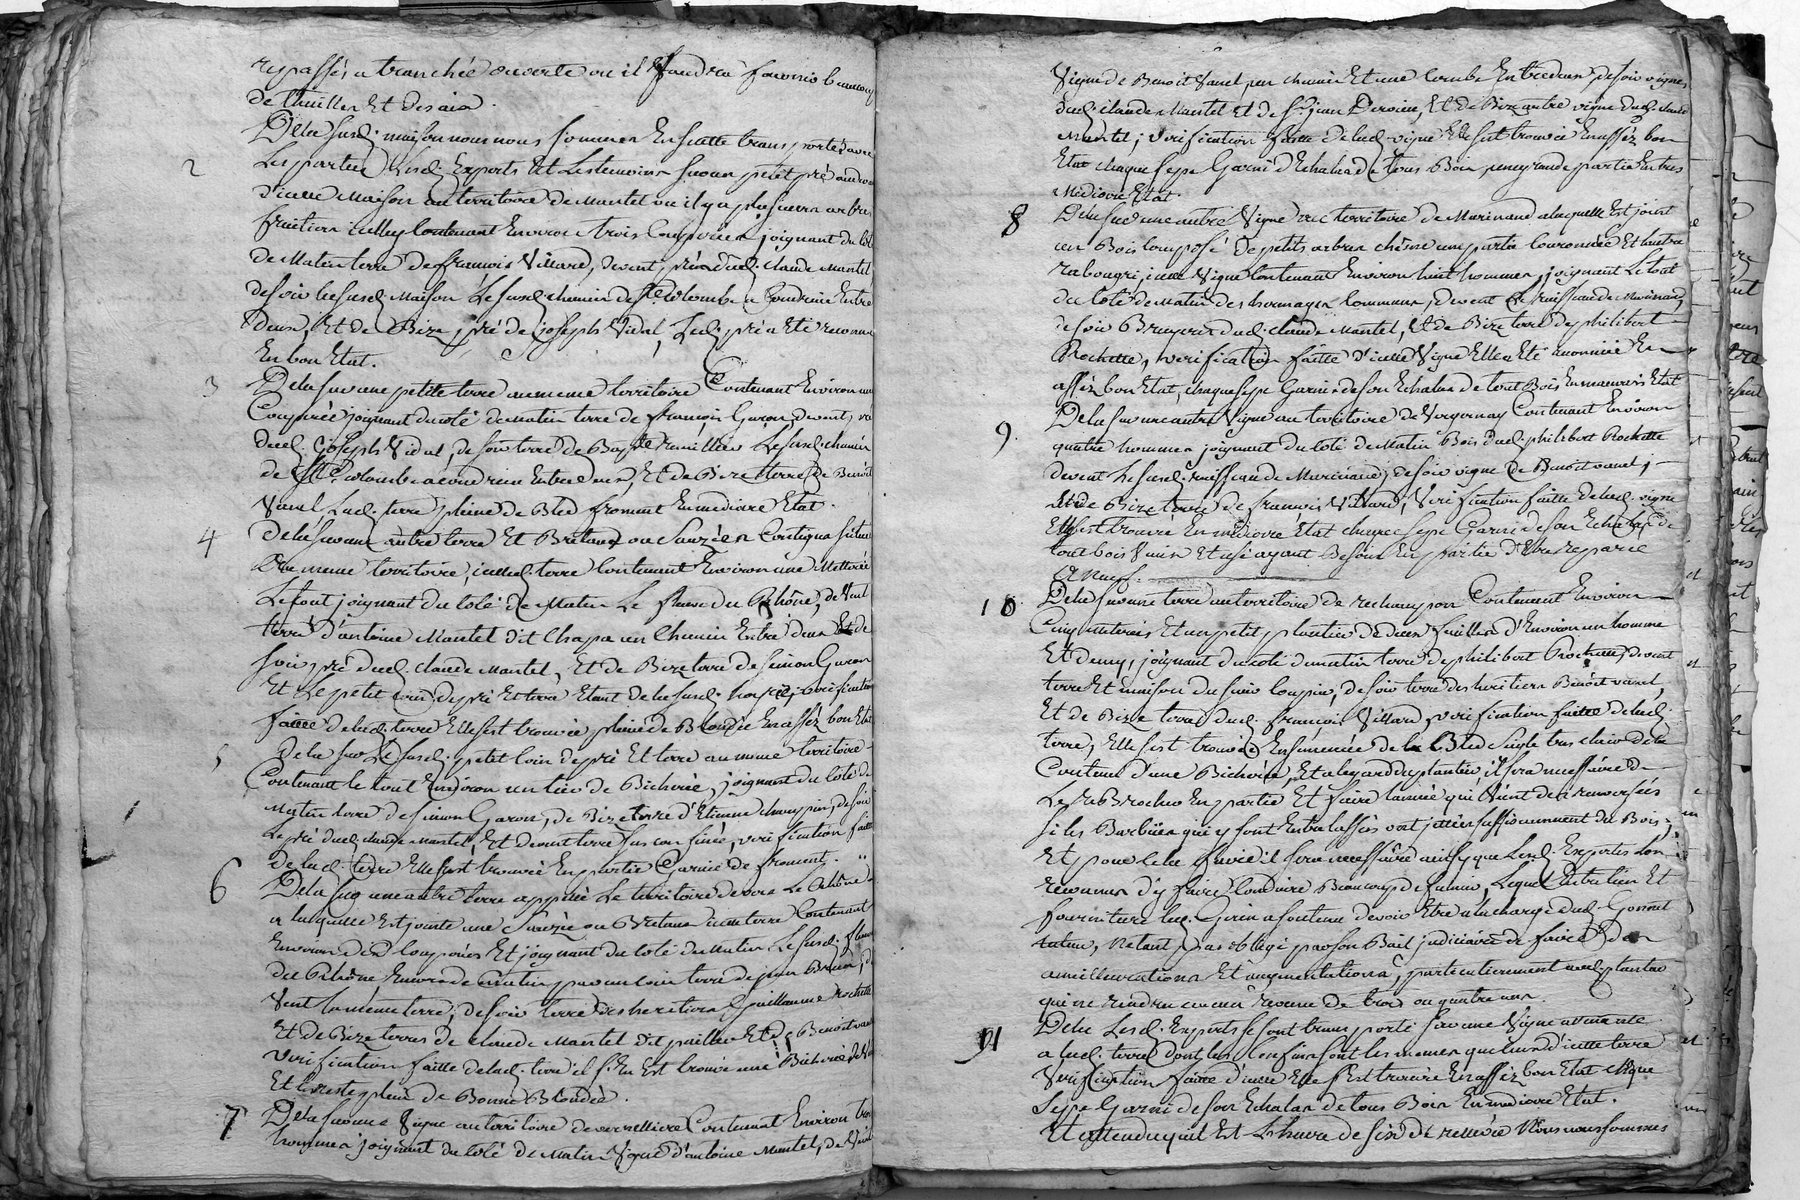 repassées a tranchée ouverte ou il faudra fournir beaucoup
de thuilles Et des aix.
2
De la susd. maison nous nous sommes Ensuitte transportés avec
Les parties Lesd. Experts Et Les temoins sur un petit pré au
d'icelle Maison au territoire de Mantel ou il y a plusieurs arbres
fruitiers icelluy Contenant Environ trois Couperées joignant du côté
de Matin terre de francois Villard, de vent, pré dud. claude Mantel
de soir La susd. Maison Le susd. chemin de Ste Colombe a Condrieu Entre
deux, Et de Bize, pré de joseph Vidal, Led. pré a Eté reconnu
En bon Etat.
3
De la sur une petite terre au meme territoire Contenant Environ une
Couperée joignant du côté de Matin terre de francois Garon, de vent,
dud. joseph Vidal, de soir terre de Le susd. chemin
de Ste Colombe a Condrieu Entre deux, Et de Bize terre de Benoit
Vanel Lad. terre pleine de Bled froment En mediocre Etat.
4
De la sur une autre terre Et Bretaux ou Sauzée Contigus situé
Au meme territoire, icelle terre Contenant Environ une Metterée
Le tout joignant du côté de Matin Le fleuve du Rhône, de Vent
terre d'antoine Mantel dit Chapa un Chemin Entre deux de
soir pré dud. claude Mantel, Et de Bize terre de simon Garon
Et Le petit coin de pré Et terre Etant de la susd. verification
faitte de lad. terre Elle s'est trouvée pleine de Blondée En assés bon Etat
5
De la sur Le susd. petit coin de pré Et terre au meme territoire
Contenant le tout Environ un tiers de Bicherée, joignant du côté de
Matin terre de simon Garon, de Bize terre d'Etienne champin, de soir
Le pré dud. claude Mantel, Et de vent terre verification faitte
de lad. terre Elle s'est trouvée En partie Garnie de froment.
6
De la sur une autre terre appellée Le territoire de vers Le Rhône
a laquelle Est jointe une Sauzée ou Bretaux icelle terre Contenant
Environ deux Couperées Et joignant du côté de Matin Le susd. fleuve
du Rhône Encore de Matin par un coin terre de jean
Vent la même terre, de soir terre des heritiers Guillaume Rochette
Et de Bize terres de claude Mantel dit Et de Benoit vanel
Verification faitte de lad. terre il s'En Est trouvé une Bicherée
Et le reste plein de Bonne Blondée.
7
De la sur une Vigne au territoire de Contenant Environ trois
hommes joignant du côté de Matin Vigne d'antoine Mantel, de Vent
Vigne de Benoit Vanel, un chemin Et une Combe Entre deux de soir vignes
dud. claude Mantel Et de sr. jean Et de Bize autre vigne dud. claude
Mantel; Verification faitte de lad. vigne Elle s'est trouvée En assés bon
Etat chaque sepe Garni d'Echalas de tous Bois, pour grande partie En tres
Mediocre Etat.
8
De la sur une autre Vigne au territoire de Marinand a laquelle Est joint
un Bois Composé de petits arbres chêne une partie Couronnée Et l'autre
rabougri, icelle Vigne Contenant Environ huit hommes, joignant Le tout
du coté de Matin des hermages Communs, de vent Le ruisseau de Marinand,
de soir Bruyeres dud. claude Mantel, Et de Bize terre de philibert
Rochette, verification faitte d'icelle Vigne Elle a Eté reconnue En
assés bon Etat, chaque sepe Garnie de son Echalas de tout Bois En mauvais Etat
9
De la sur une autre Vigne au territoire de Vergernay Contenant Environ
quatre hommes joignant du coté de Matin Bois dud. philibert Rochette
de vent Le susd. ruisseau de Marinand, de soir vigne de Benoit vanel,
Et de Bize terre de francois Villard, Verification faitte de lad. vigne
Elle s'est trouvée En mediocre Etat chaque sepe Garni de son Echalas de
tout bois Et usé ayant Besoin En partie d'Etre reparée
A Neuf.
10
De la sur une terre au territoire de rechampon Contenant Environ
Cinq Et un petit plantier de deux feuilles d'Environ un homme
Et demy, joignant du coté de matin terre de philibert Rochette, de vent
terre Et maison du sieur Coupin, de soir terre des heritiers Benoit vanel,
Et de Bize terre dud. francois Villard, verification faitte de lad.
terre, Elle s'est trouvée Ensemencée de Bled seigle tres clair de la
Contenue d'une Bicherée, Et a legard du plantier, il sera necessaire de
Le En partie Et faire qui vient de renversés
si les Barbües qui y sont Entrelassés ont jettés suffisamment du Bois,
Et pour Cela il sera necessaire ainsy que Lesd. Experts L'on
reconnus d'y faire Conduire Beaucoup de fumier, Lequel Entretien Et
fourniture led. Gerin a soutenu devoir Etre a la charge dud. Gonont
N'etant pas obligé par son Bail judiciaire de faire des
ameilliorations Et augmentations, particulierement aud. plantier
qui ne rendra aucun revenu de trois ou quatre ans.
11
De la Lesd. Experts se sont transporté sur une Vigne attenante
a lad. terre dont les Confins sont les memes que ceux d'icelle terre
Verification faitte d'icelle Elle s'est trouvée En assés bon Etat chaque
sepe Garni de son Echalas de tous Bois En mediocre Etat.
Et attendu qu'il Est L'heure de six de rellevée Nous nous sommes